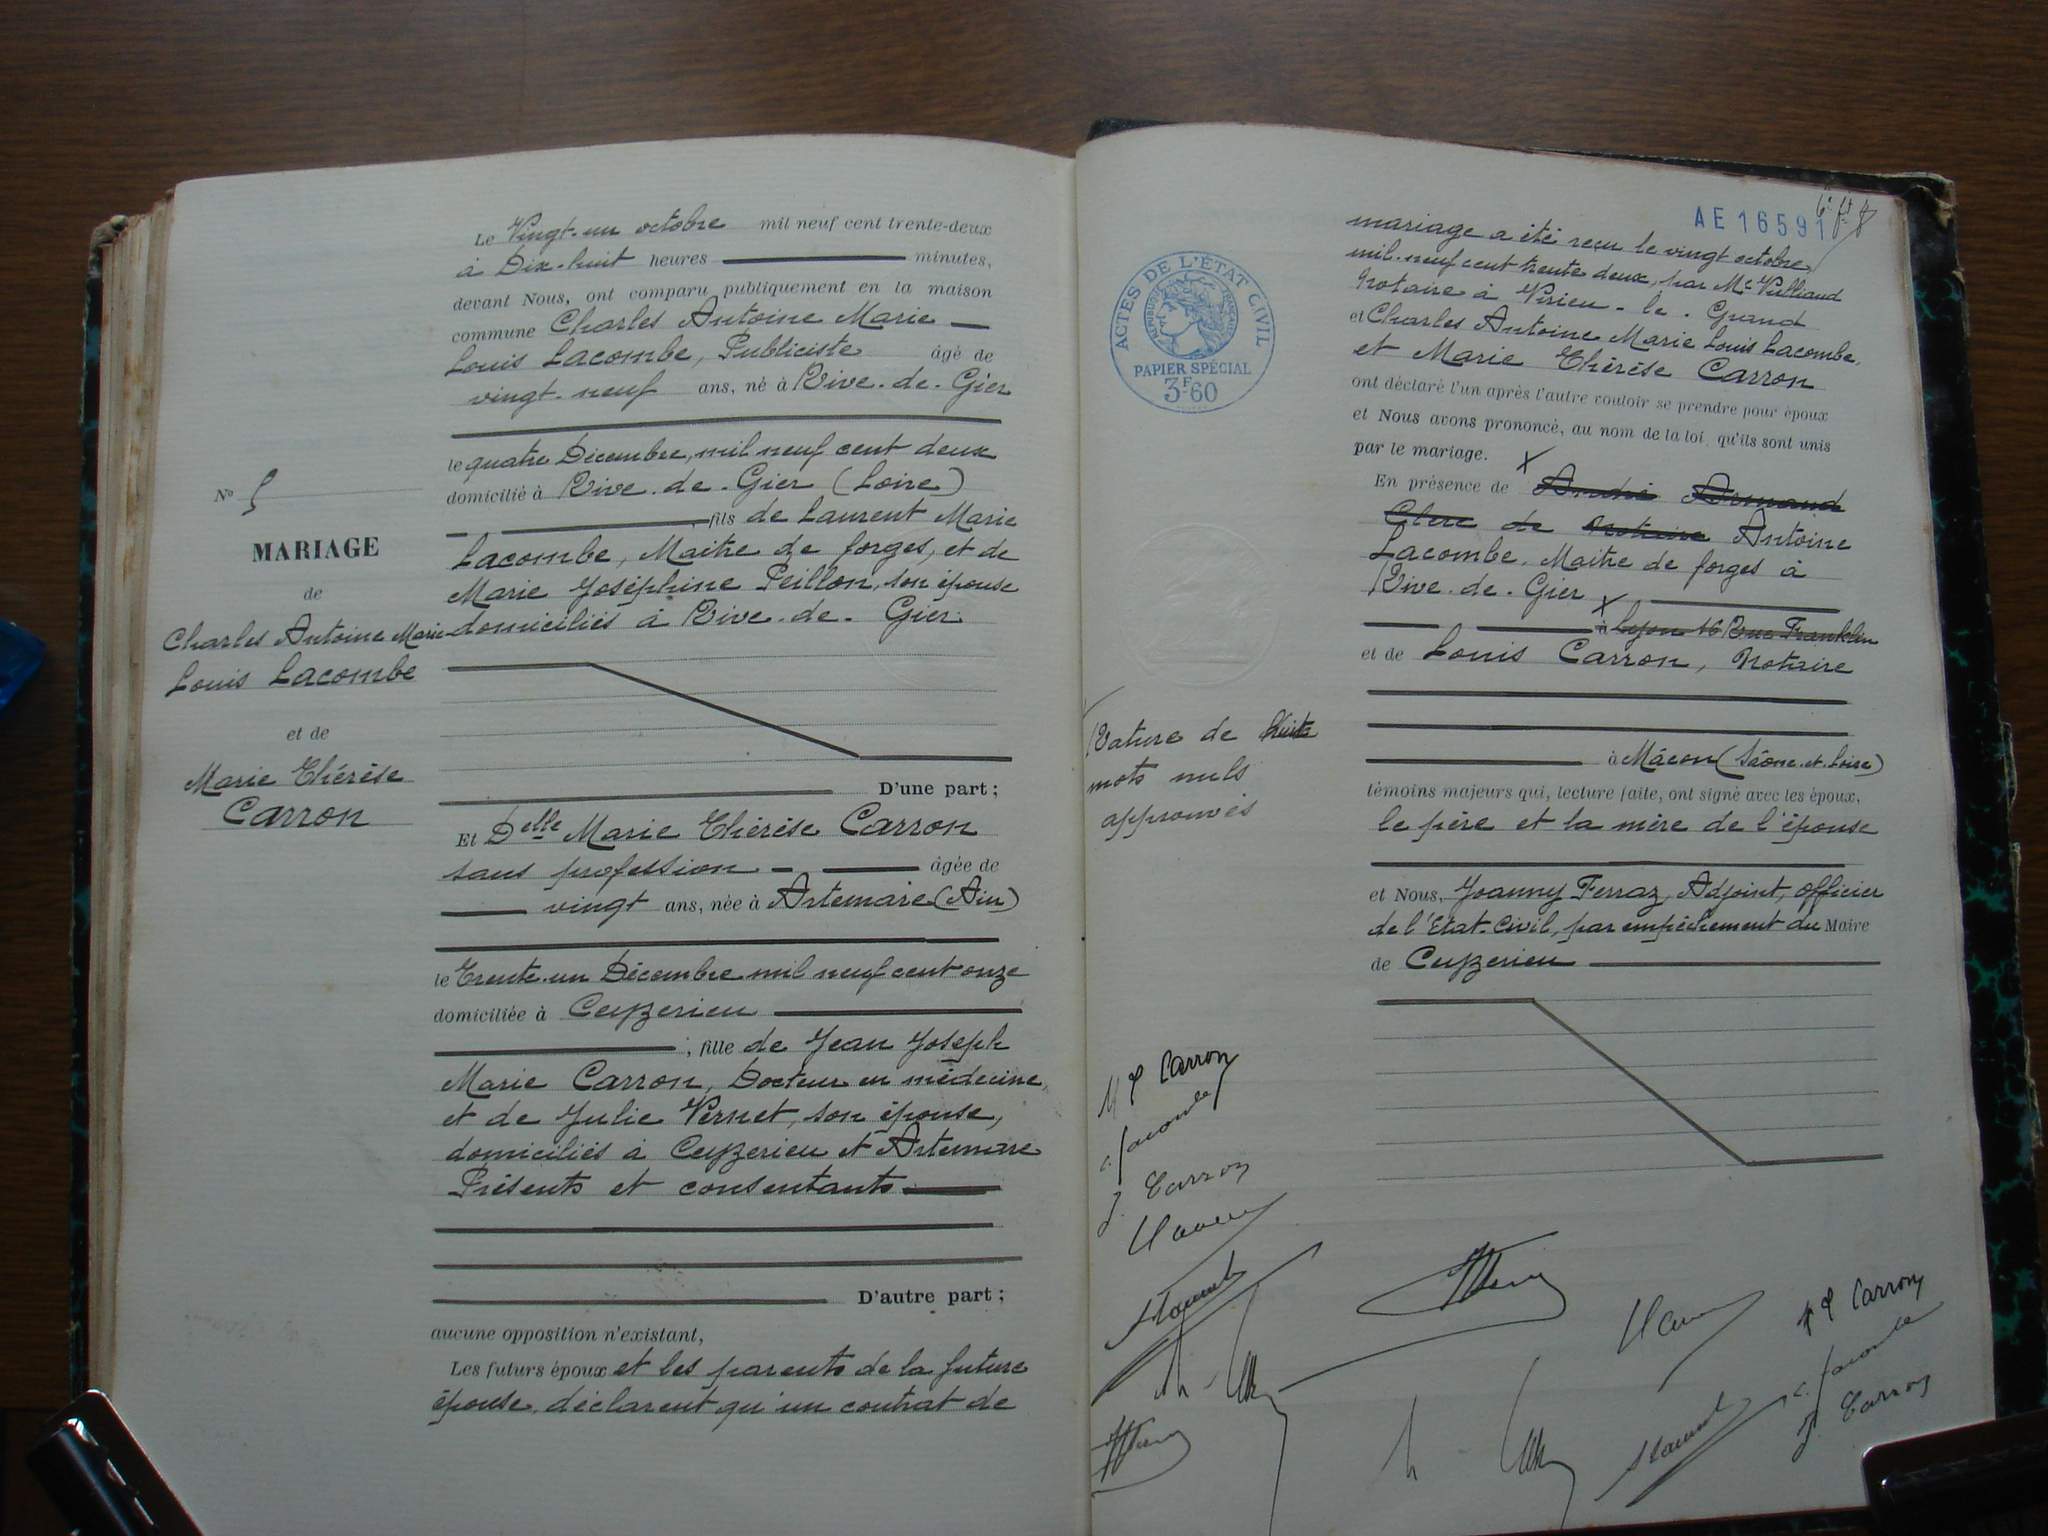 Le Vingt-un octobre mil neuf cent trente-deux
à Dix-huit heures minutes,
devant Nous, ont comparu publiquement en la maison
commune Charles Antoine Marie
Louis Lacombe, Publiciste âgé de
vingt-neuf ans, né à Rive-de-Gier
le quatre Décembre, mil neuf cent deux
domicilié à Rive-de-Gier (Loire)
, fils de Laurent Marie
Lacombe, Maitre de forges, et de
Marie Joséphine Peillon, son épouse
domiciliés à Rive-de-Gier.
D'une part ;
Et Delle Marie Thérèse Carron
sans profession âgée de
vingt ans, née à Artemare (Ain)
le Trente-un Décembre mil neuf cent onze
domiciliée à Ceyzerieu
, fille de Jean Joseph
Marie Carron, Docteur en médecine,
et de Julie Vernet, son épouse,
domiciliés à Ceyzerieu et Artemare
Présents et consentants
D'autre part ;
aucune opposition n'existant,
Les futurs époux et les parents de la future
épouse, déclarent qu'un contrat de
No 5
MARIAGE
de
Charles Antoine Marie
Louis Lacombe
et de
Marie Thérèse
Carron
AE 16591
mariage a été reçu le vingt octobre,
mil-neuf cent trente deux, par Me Vulliaud
Notaire à Virieu-le-Grand
et Charles Antoine Marie Louis Lacombe,
et Marie Thérèse Carron
ont déclaré l'un après l'autre vouloir se prendre pour époux
et Nous avons prononcé, au nom de la loi, qu'ils sont unis
par le mariage.
En présence de André Armand
Clerc de Notaire Antoine
Lacombe, Maitre de forges à
Rive-de-Gier
à Lyon 16 Rue Franklin
et de Louis Carron, Notaire
à Mâcon (Sâone-et-Loire)
témoins majeurs qui, lecture faite, ont signé avec les époux,
le père et la mère de l'épouse
et Nous, Joanny Ferraz, Adjoint, officier
de l'Etat-Civil, par empêchement du Maire
de Ceyzerieu
ACTES DE L'ÉTAT CIVIL
RÉPUBLIQUE FRANÇAISE
PAPIER SPÉCIAL
3F60
Rature de huit
mots nuls
approuvés
M T Carron
c. Lacombe
J. Carron
M T Carron
c. Lacombe
J. Carron